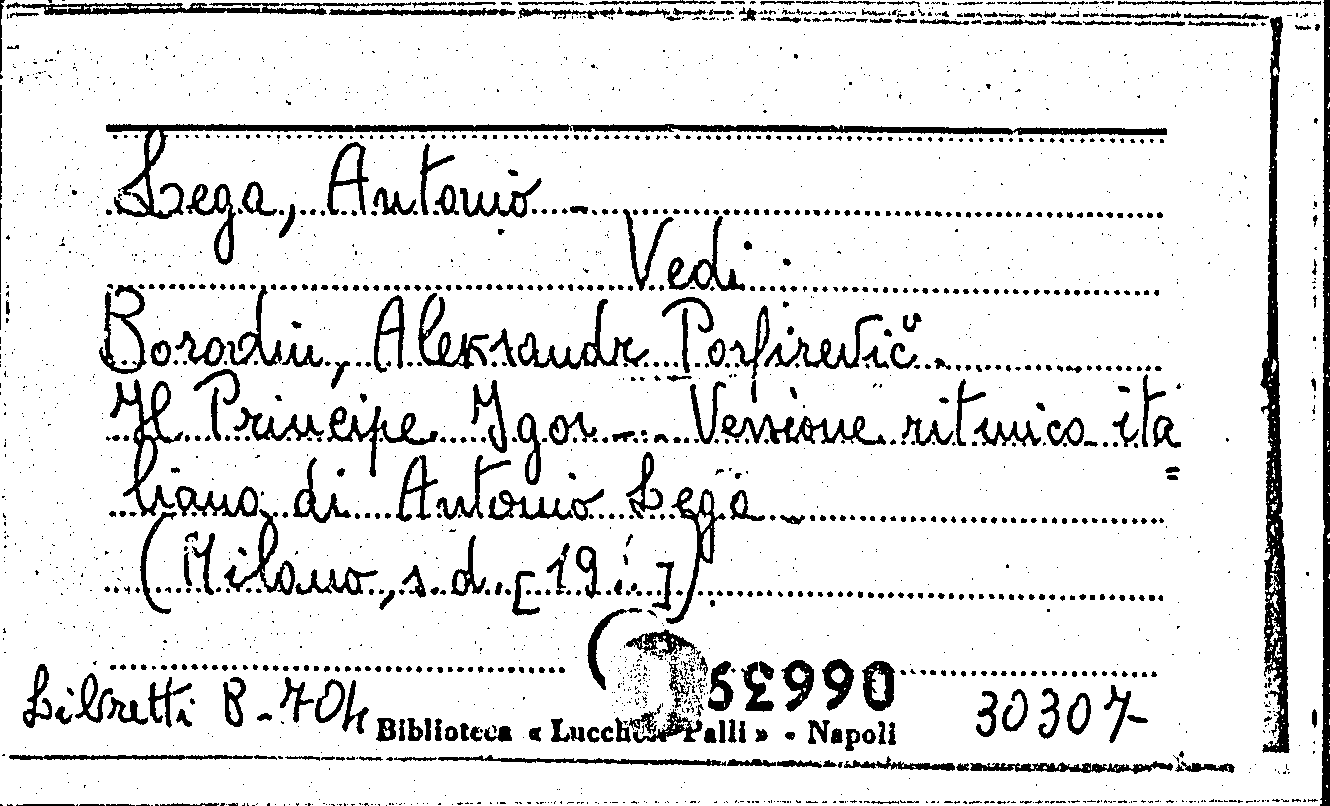 Lega, Antonio -
Vedi:
Borodin, Aleksandr Porfirevič.
Il Principe Igor - Versione ritmica ita=
liana di Antonio Lega -
(Milano, s. d. [19..])
066352
Libretti B-704
Biblioteca « Lucchesi Palli » - Napoli
30307